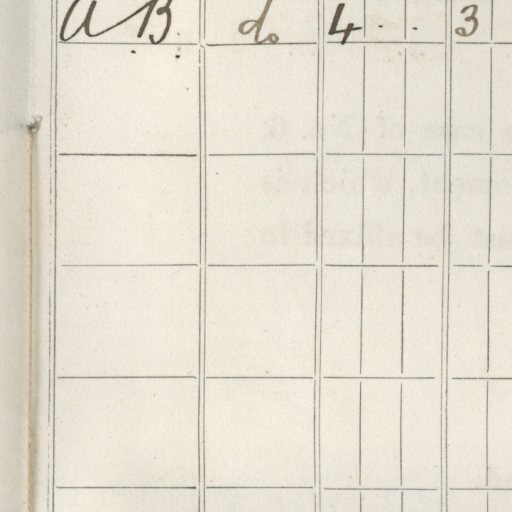 AB. do 4 . . 3